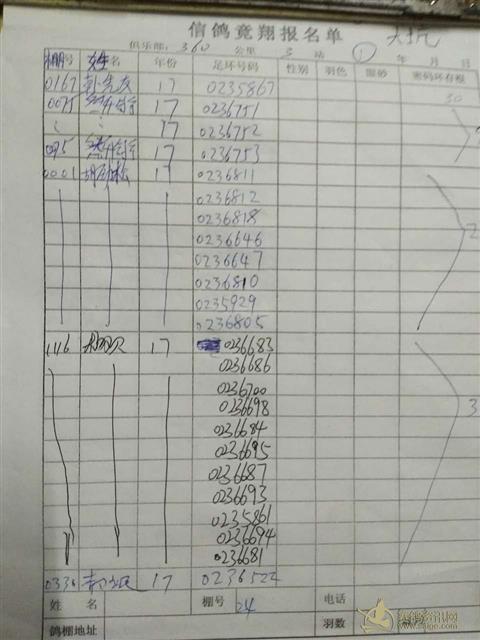 信鸽竞翔报名单
俱乐部: 360 公里 3 站 ① 年 月 日
棚号 姓名 年份 足环号码 性别 羽色 眼砂 密码环存根
0167 17 0235867
0075 17 0236751 30
17 0236752
095 17 0236753
0001 17 0236811
0236812
0236818
0236646 2
0236647
0236810
0235929
0236805
1116 17 0236683
0236686
0236700
0236698 3
0236684
0236695
0236687
0236693
0235861
0236694
0236681
0336 17 0236522
姓 名 棚号 24 电话
鸽棚地址 羽数